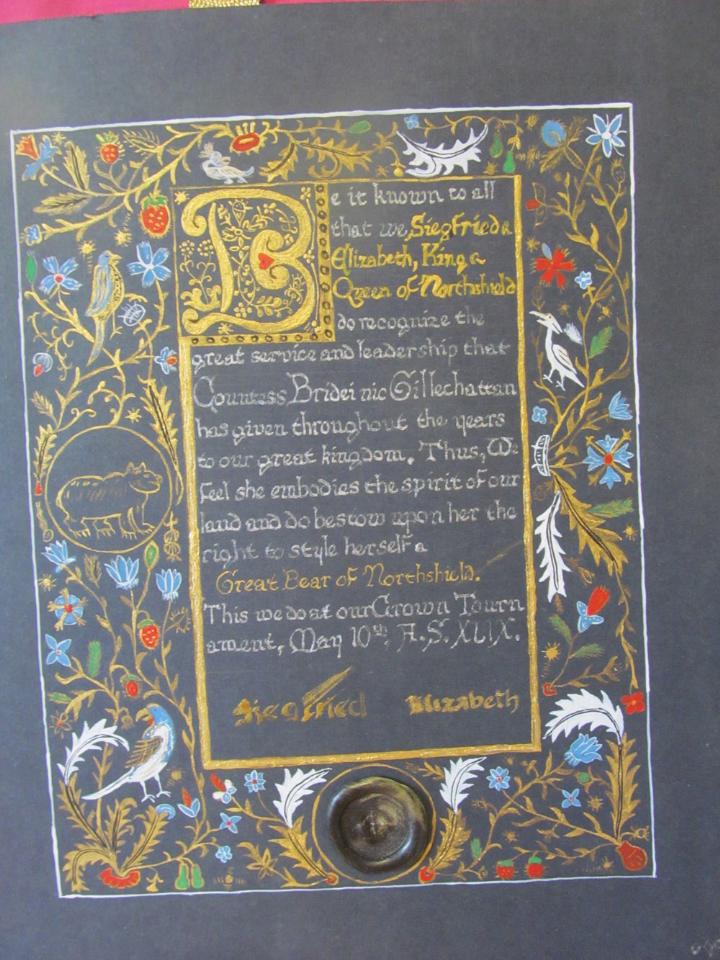 Be it known to all
that we, Siegfried &
Elizabeth, King &
Queen of Northshield
do recognize the
great service and leadership that
Countess Bridei nic Gillechattan
has given throughout the years
to our great kingdom. Thus, We
feel she embodies the spirit of our
land and do bestow upon her the
right to style herself a
Great Bear of Northshield.
This we do at our Crown Tourn
ament, May 10th, A.S. XLIX.
Siegfried Elizabeth